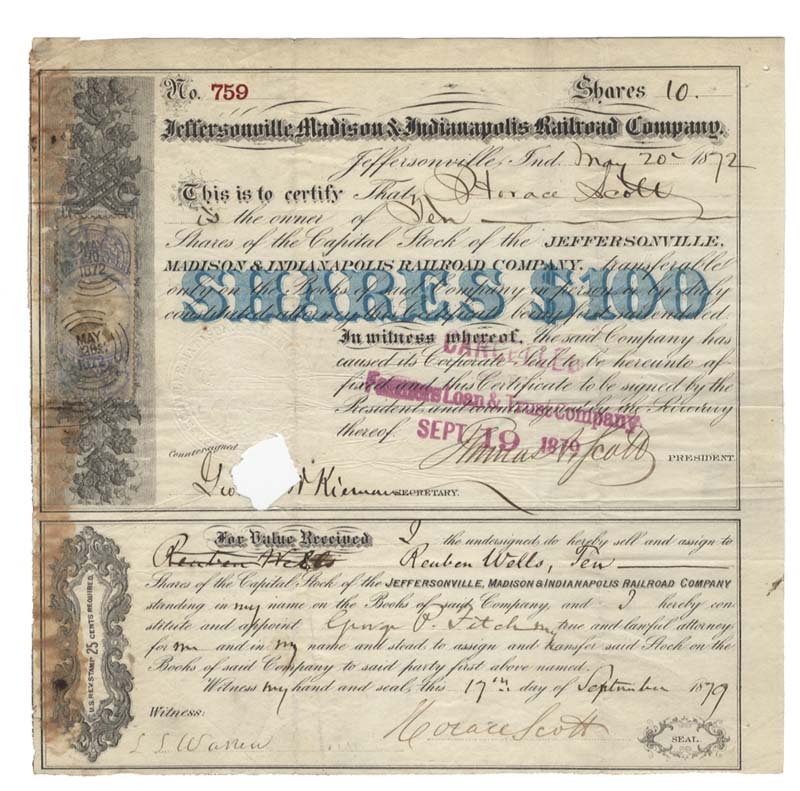 No. 759 Shares 10.
Jeffersonville, Madison & Indianapolis Railroad Company.
Jeffersonville, Ind. May 20 1872
This is to certify That Horace Scott
is the owner of Ten
Shares of the Capital Stock of the JEFFERSONVILLE,
MADISON & INDIANAPOLIS RAILROAD COMPANY, transferable
only on the Books of said Company in person or by duly
SHARES $100
In witness whereof, the said Company has
CANCELLED
caused its Corporate Seal to be hereunto af-
fixed and this Certificate to be signed by the
Farmers Loan & Trust Company.
President and countersigned by the Secretary
thereof.
SEPT 19 1879
Thomas A. Scott PRESIDENT.
Countersigned
Geo W Kiernan SECRETARY.
MAY 20 1872
MAY 20 1872
For Value Received I the undersigned, do hereby sell and assign to
Reuben Wells Reuben Wells, Ten
Shares of the Capital Stock of the JEFFERSONVILLE, MADISON & INDIANAPOLIS RAILROAD COMPANY
standing in my name on the Books of said Company, and I hereby con-
stitute and appoint George P. Fitch my true and lawful attorney
for me and in my name and stead, to assign and transfer said Stock on the
Books of said Company to said party first above named.
Witness my hand and seal, this 17th day of September 1879
Witness:
L L Warren Horace Scott SEAL.
U.S. REV. STAMP 25 CENTS REQUIRED.